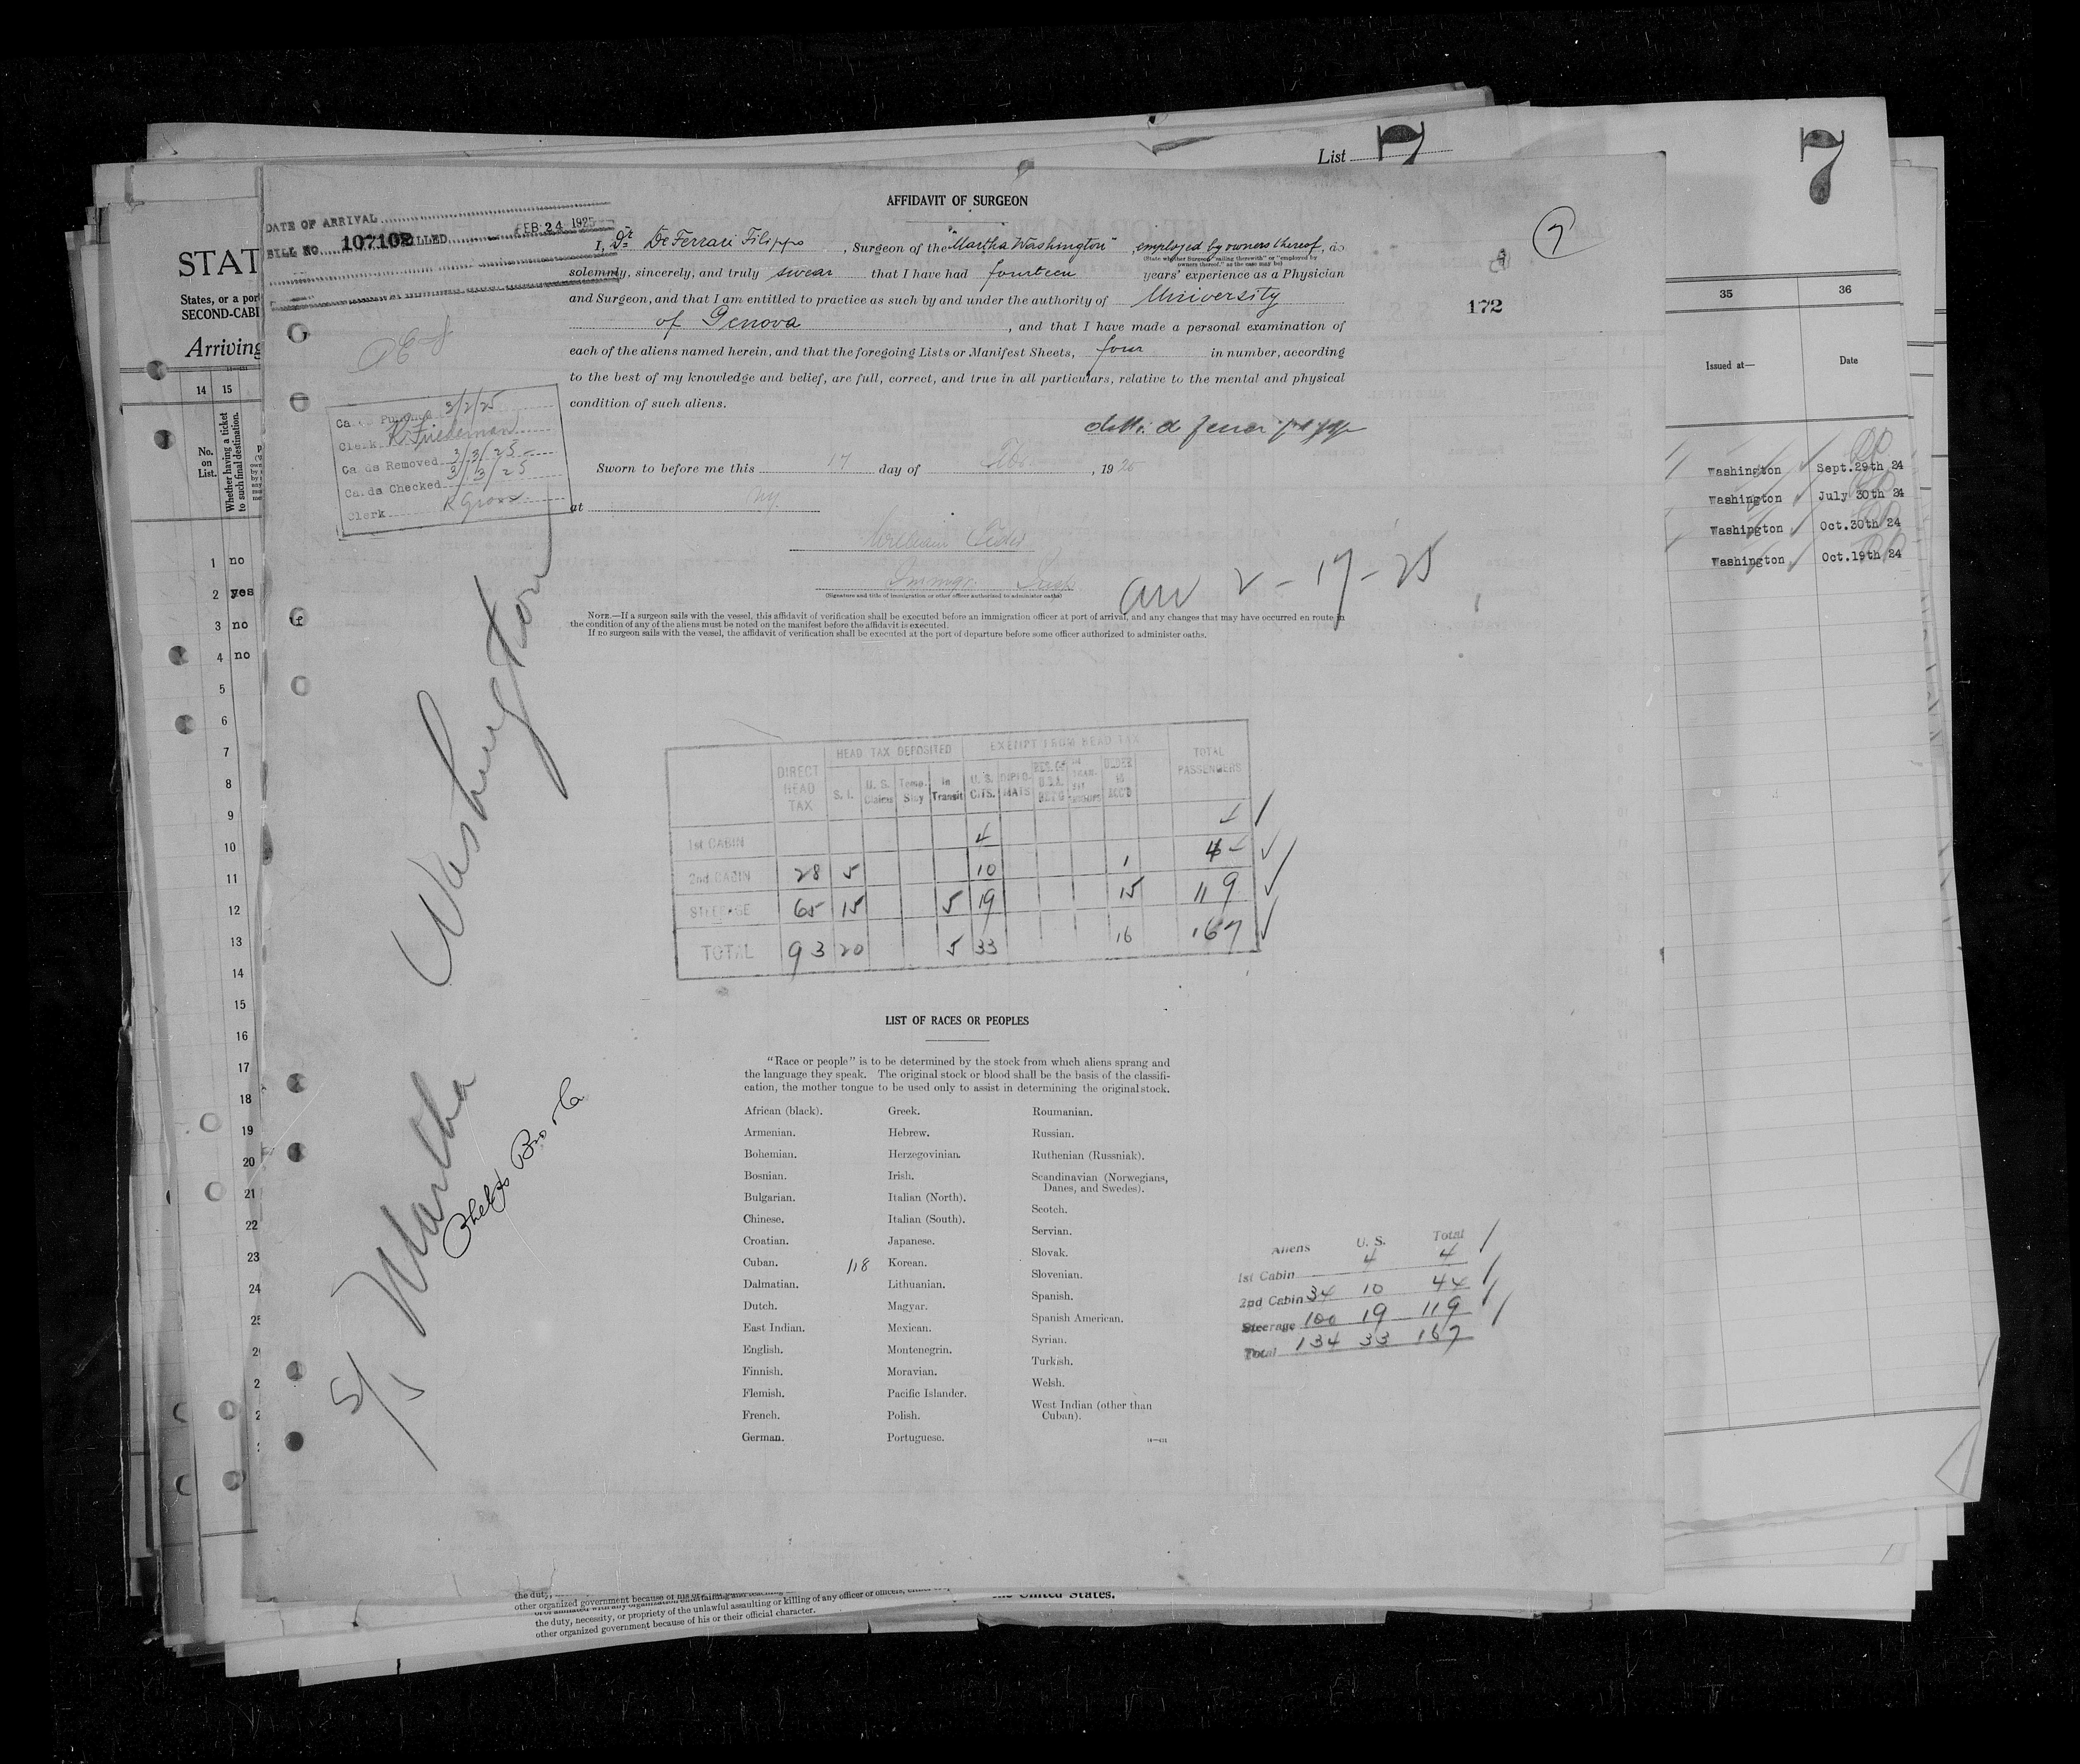 List 7
7
AFFIDAVIT OF SURGEON
DATE OF ARRIVAL
BILL NO. 107102 BILLED FEB 24 1925
7
I, Dr De Ferrari Filippo, Surgeon of the "Martha Washington", employed by owners thereof, do
(State whether Surgeon "sailing therewith" or "employed by
owners thereof," as the case may be)
solemnly, sincerely, and truly swear that I have had fourteen years' experience as a Physician
and Surgeon, and that I am entitled to practice as such by and under the authority of University
of Genova, and that I have made a personal examination of
each of the aliens named herein, and that the foregoing Lists or Manifest Sheets, four in number, according
to the best of my knowledge and belief, are full, correct, and true in all particulars, relative to the mental and physical
condition of such aliens.
172
Cards Punched 3/2/25
Clerk K. Friedeman
Cards Removed 3/3/25
Cards Checked 3/3/25
Clerk R Gross
Sworn to before me this 17 day of , 1925
at NY.
William
Immgr. Insp
(Signature and title of immigration or other officer authorized to administer oaths)
arr 2-17-25
NOTE.—If a surgeon sails with the vessel, this affidavit of verification shall be executed before an immigration officer at port of arrival, and any changes that may have occurred en route in
the condition of any of the aliens must be noted on the manifest before the affidavit is executed.
If no surgeon sails with the vessel, the affidavit of verification shall be executed at the port of departure before some officer authorized to administer oaths.
S/S Martha Washington
Phelps Bro & Co
DIRECT HEAD TAX
HEAD TAX DEPOSITED
EXEMPT FROM HEAD TAX
TOTAL PASSENGERS
S. I. U. S. Claims Temp. Stay In Transit U. S. CITS. DIPLO-MATS RES. OF U.S.A. RET'G UNDER 16 ACC'D
1st CABIN 4 4
2nd CABIN 28 5 10 1 44
STEERAGE 65 15 5 19 15 119
TOTAL 93 20 5 33 16 167
LIST OF RACES OR PEOPLES
"Race or people" is to be determined by the stock from which aliens sprang and
the language they speak. The original stock or blood shall be the basis of the classifi-
cation, the mother tongue to be used only to assist in determining the original stock.
African (black).
Armenian.
Bohemian.
Bosnian.
Bulgarian.
Chinese.
Croatian.
Cuban.
Dalmatian.
Dutch.
East Indian.
English.
Finnish.
Flemish.
French.
German.
118
Greek.
Hebrew.
Herzegovinian.
Irish.
Italian (North).
Italian (South).
Japanese.
Korean.
Lithuanian.
Magyar.
Mexican.
Montenegrin.
Moravian.
Pacific Islander.
Polish.
Portuguese.
Roumanian.
Russian.
Ruthenian (Russniak).
Scandinavian (Norwegians,
Danes, and Swedes).
Scotch.
Servian.
Slovak.
Slovenian.
Spanish.
Spanish American.
Syrian.
Turkish.
Welsh.
West Indian (other than
Cuban).
Aliens U. S. Total
1st Cabin 4 4
2nd Cabin 34 10 44
Steerage 100 19 119
Total 134 33 167
STAT
States, or a port
SECOND-CABI
Arriving
14 15
No. on List.
Whether having a ticket to such final destination.
1 no
2 yes
3 no
4 no
5
6
7
8
9
10
11
12
13
14
15
16
17
18
19
20
21
22
23
24
25
35 36
Issued at— Date
Washington Sept.29th 24
Washington July 30th 24
Washington Oct.30th 24
Washington Oct.19th 24
the duty,
other organized government because of his or
the United States.
the duty, necessity, or propriety of the unlawful assaulting or killing of any officer or officers,
other organized government because of his or their official character.